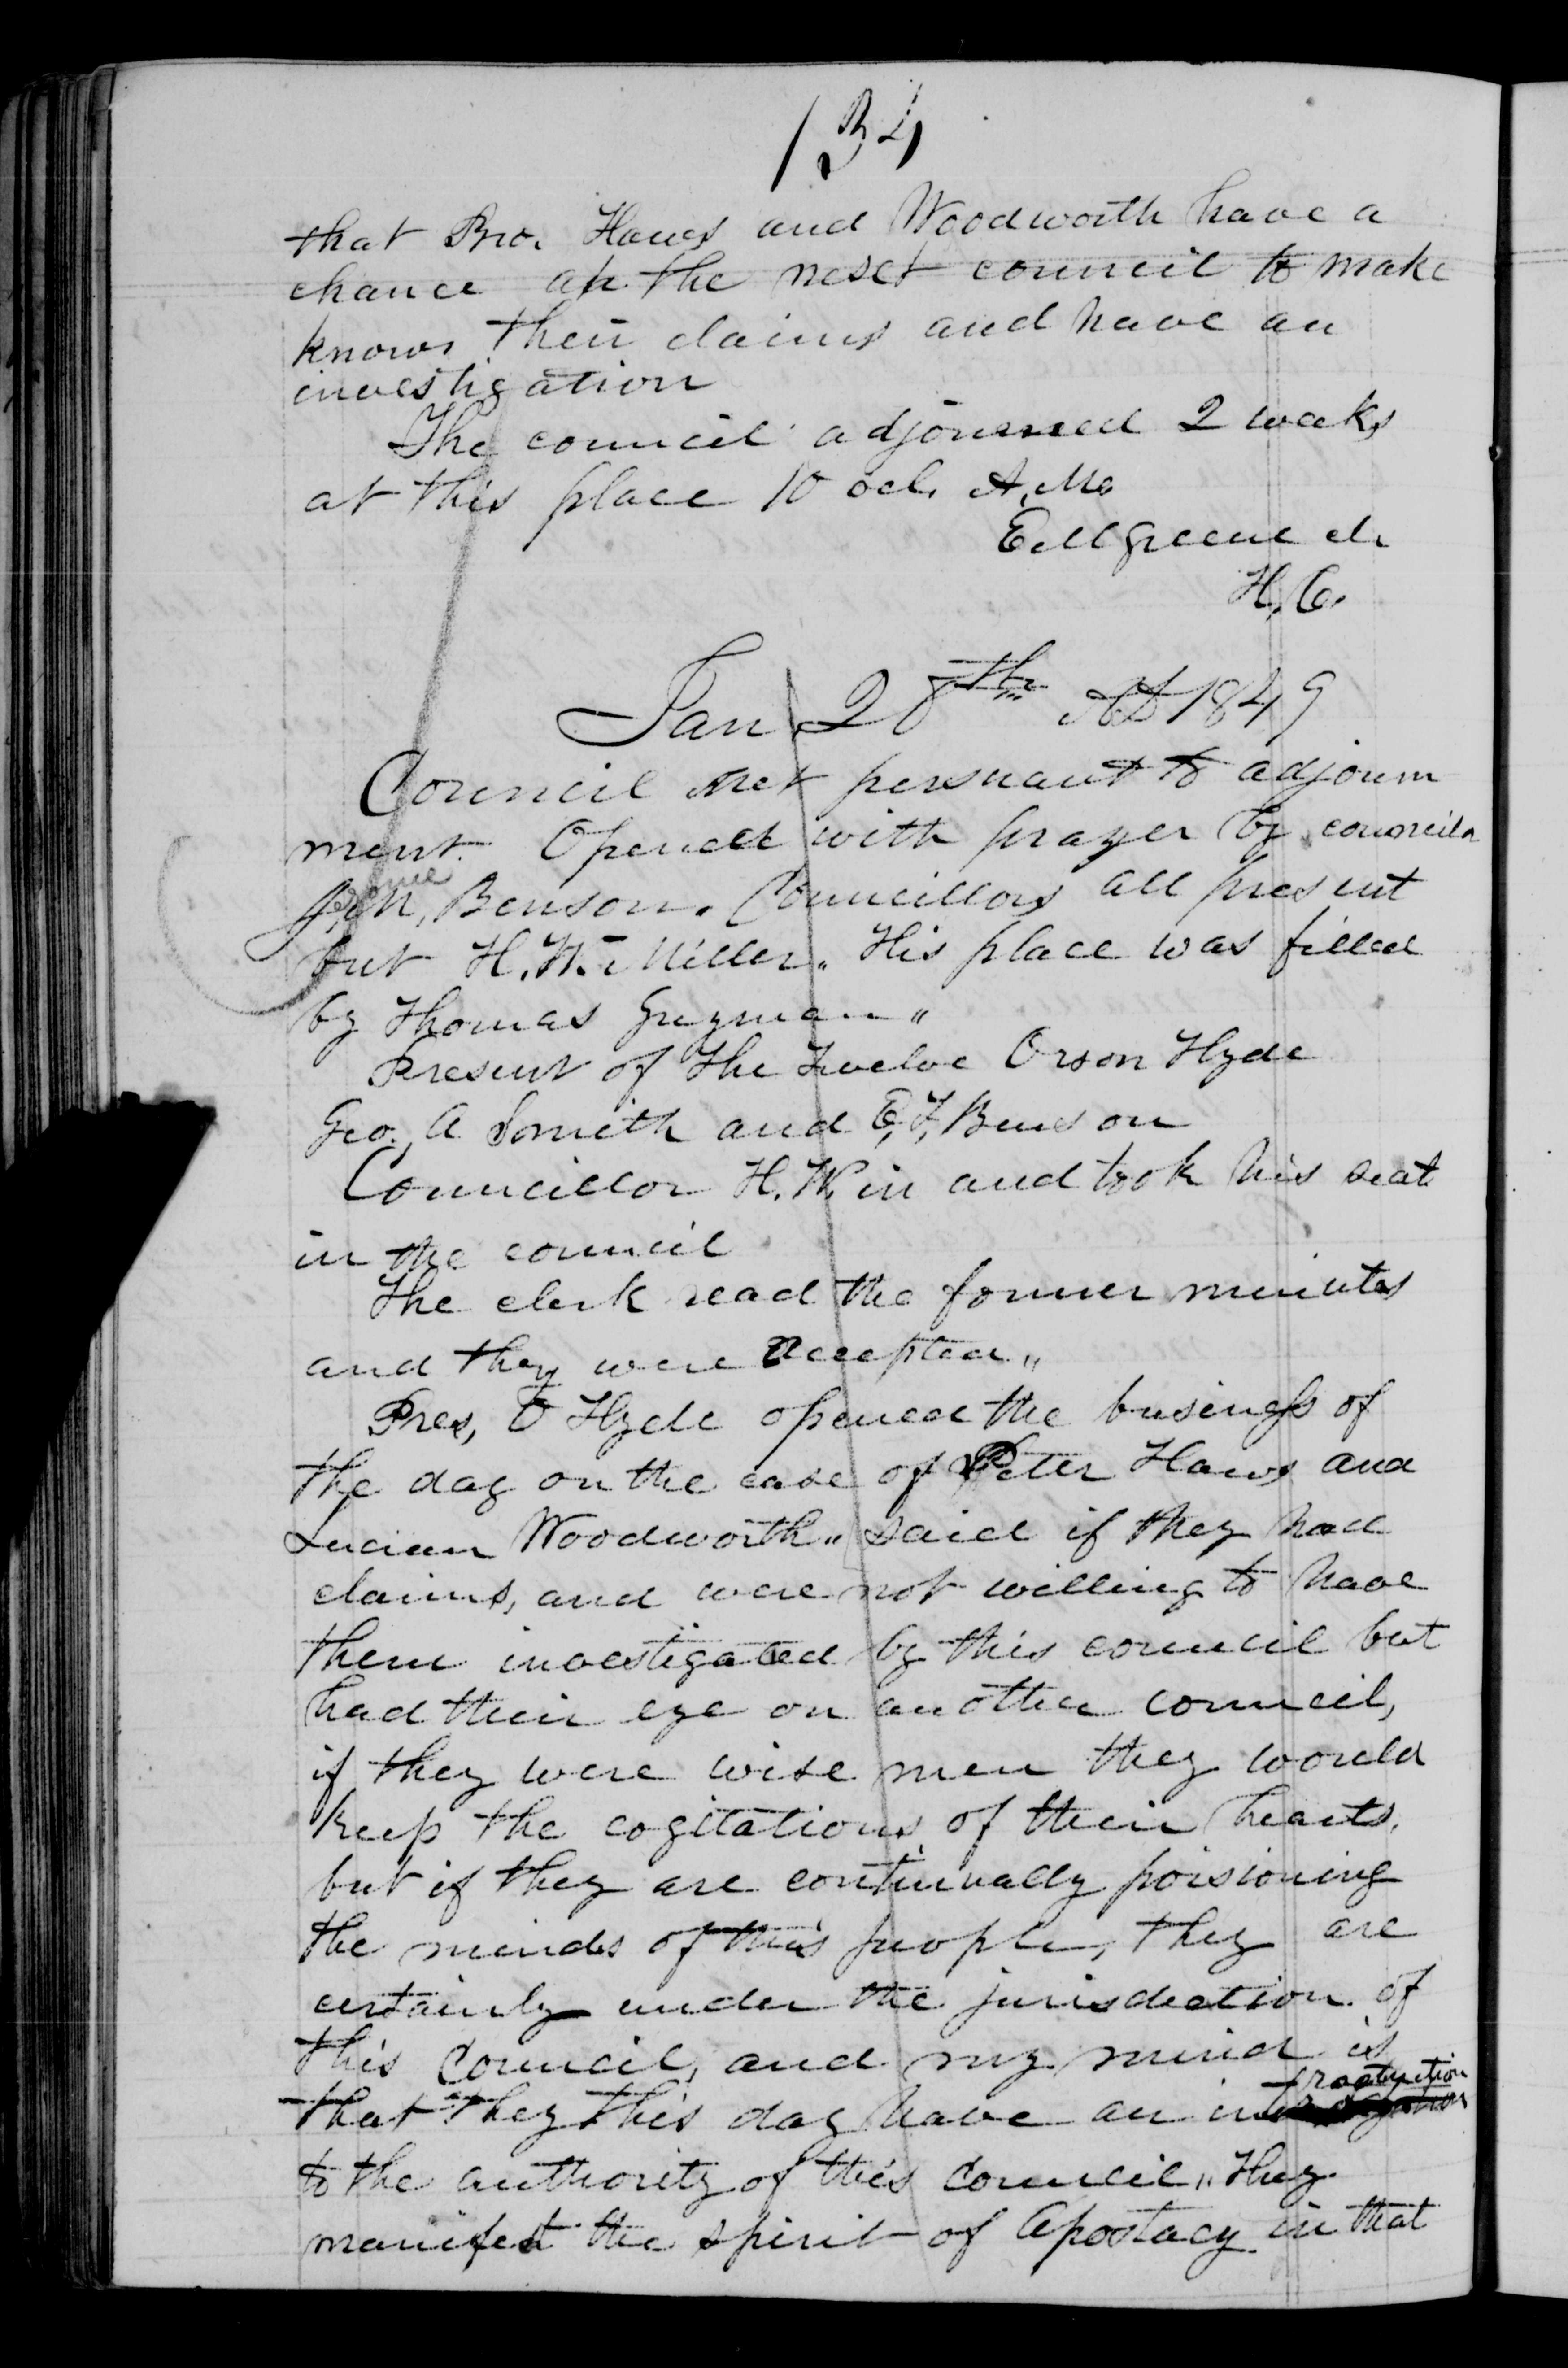 134
that Bro. Haws and Woodworth have a
chance at the next council to make
known their claims and have an
investigation
The council adjourned 2 weeks
at this place 10 ocl. A.M.
E M Greene cl.
H.C.
Jan 20th AD 1849
Council met persuant to adjourn
ment. Opened with prayer by councilor
Benson. Councillors all present
but H.W. Miller. His place was filled
by Thomas Guyman "
Present of The Twelve Orson Hyde
Geo. A Smith and E,T, Benson
Councillor H.W. in and took his seat
in the council
The clerk read the former minutes
and they were accepted "
Pres, O Hyde opened the business of
the day on the case of Peter Haws and
Lucian Woodworth " said if they had
claims, and were not willing to have
them investigated by this council but
had their eye on another council,
if they were wise men they would
keep the cogitations of their hearts,
but if they are continually poisioning
the minds of this people, they are
certainly under the jurisdection of
this Council, and my mind is
that they this day have an in
to the authority of this Council " They
manifest the spirit of Apostacy in that